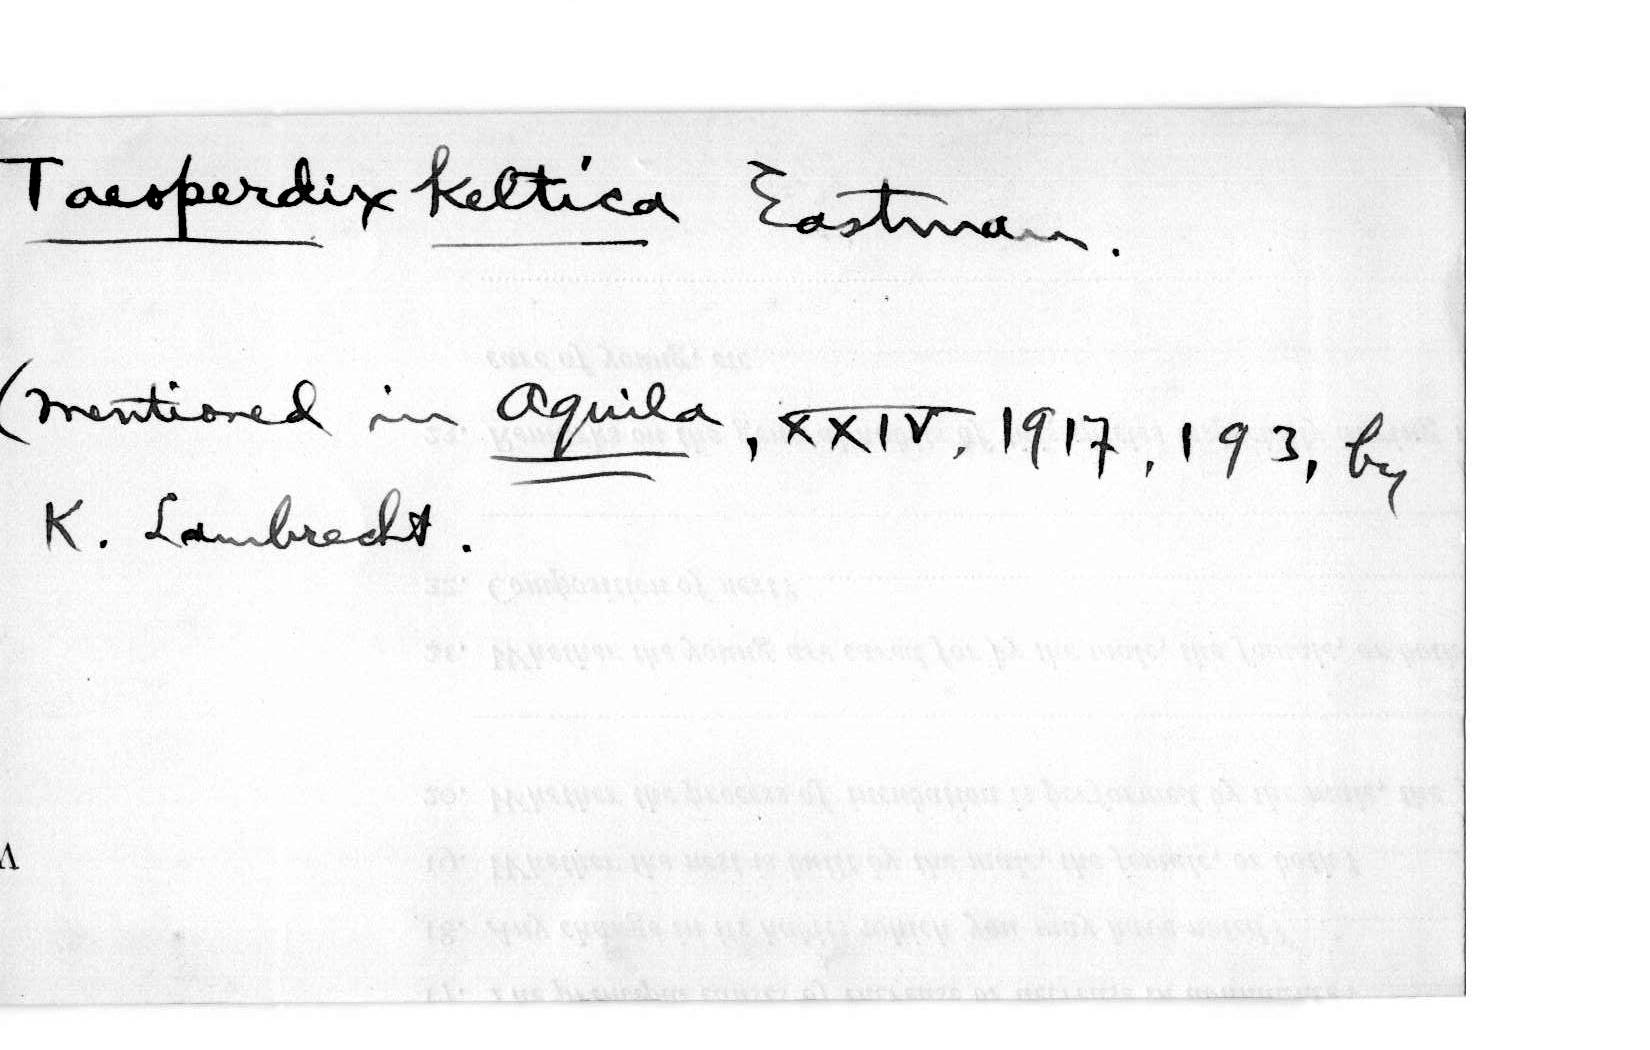 Taeoperdix keltica Eastman.
(mentioned in Aquila, XXIV, 1917, 193, by
K. Lambrecht.